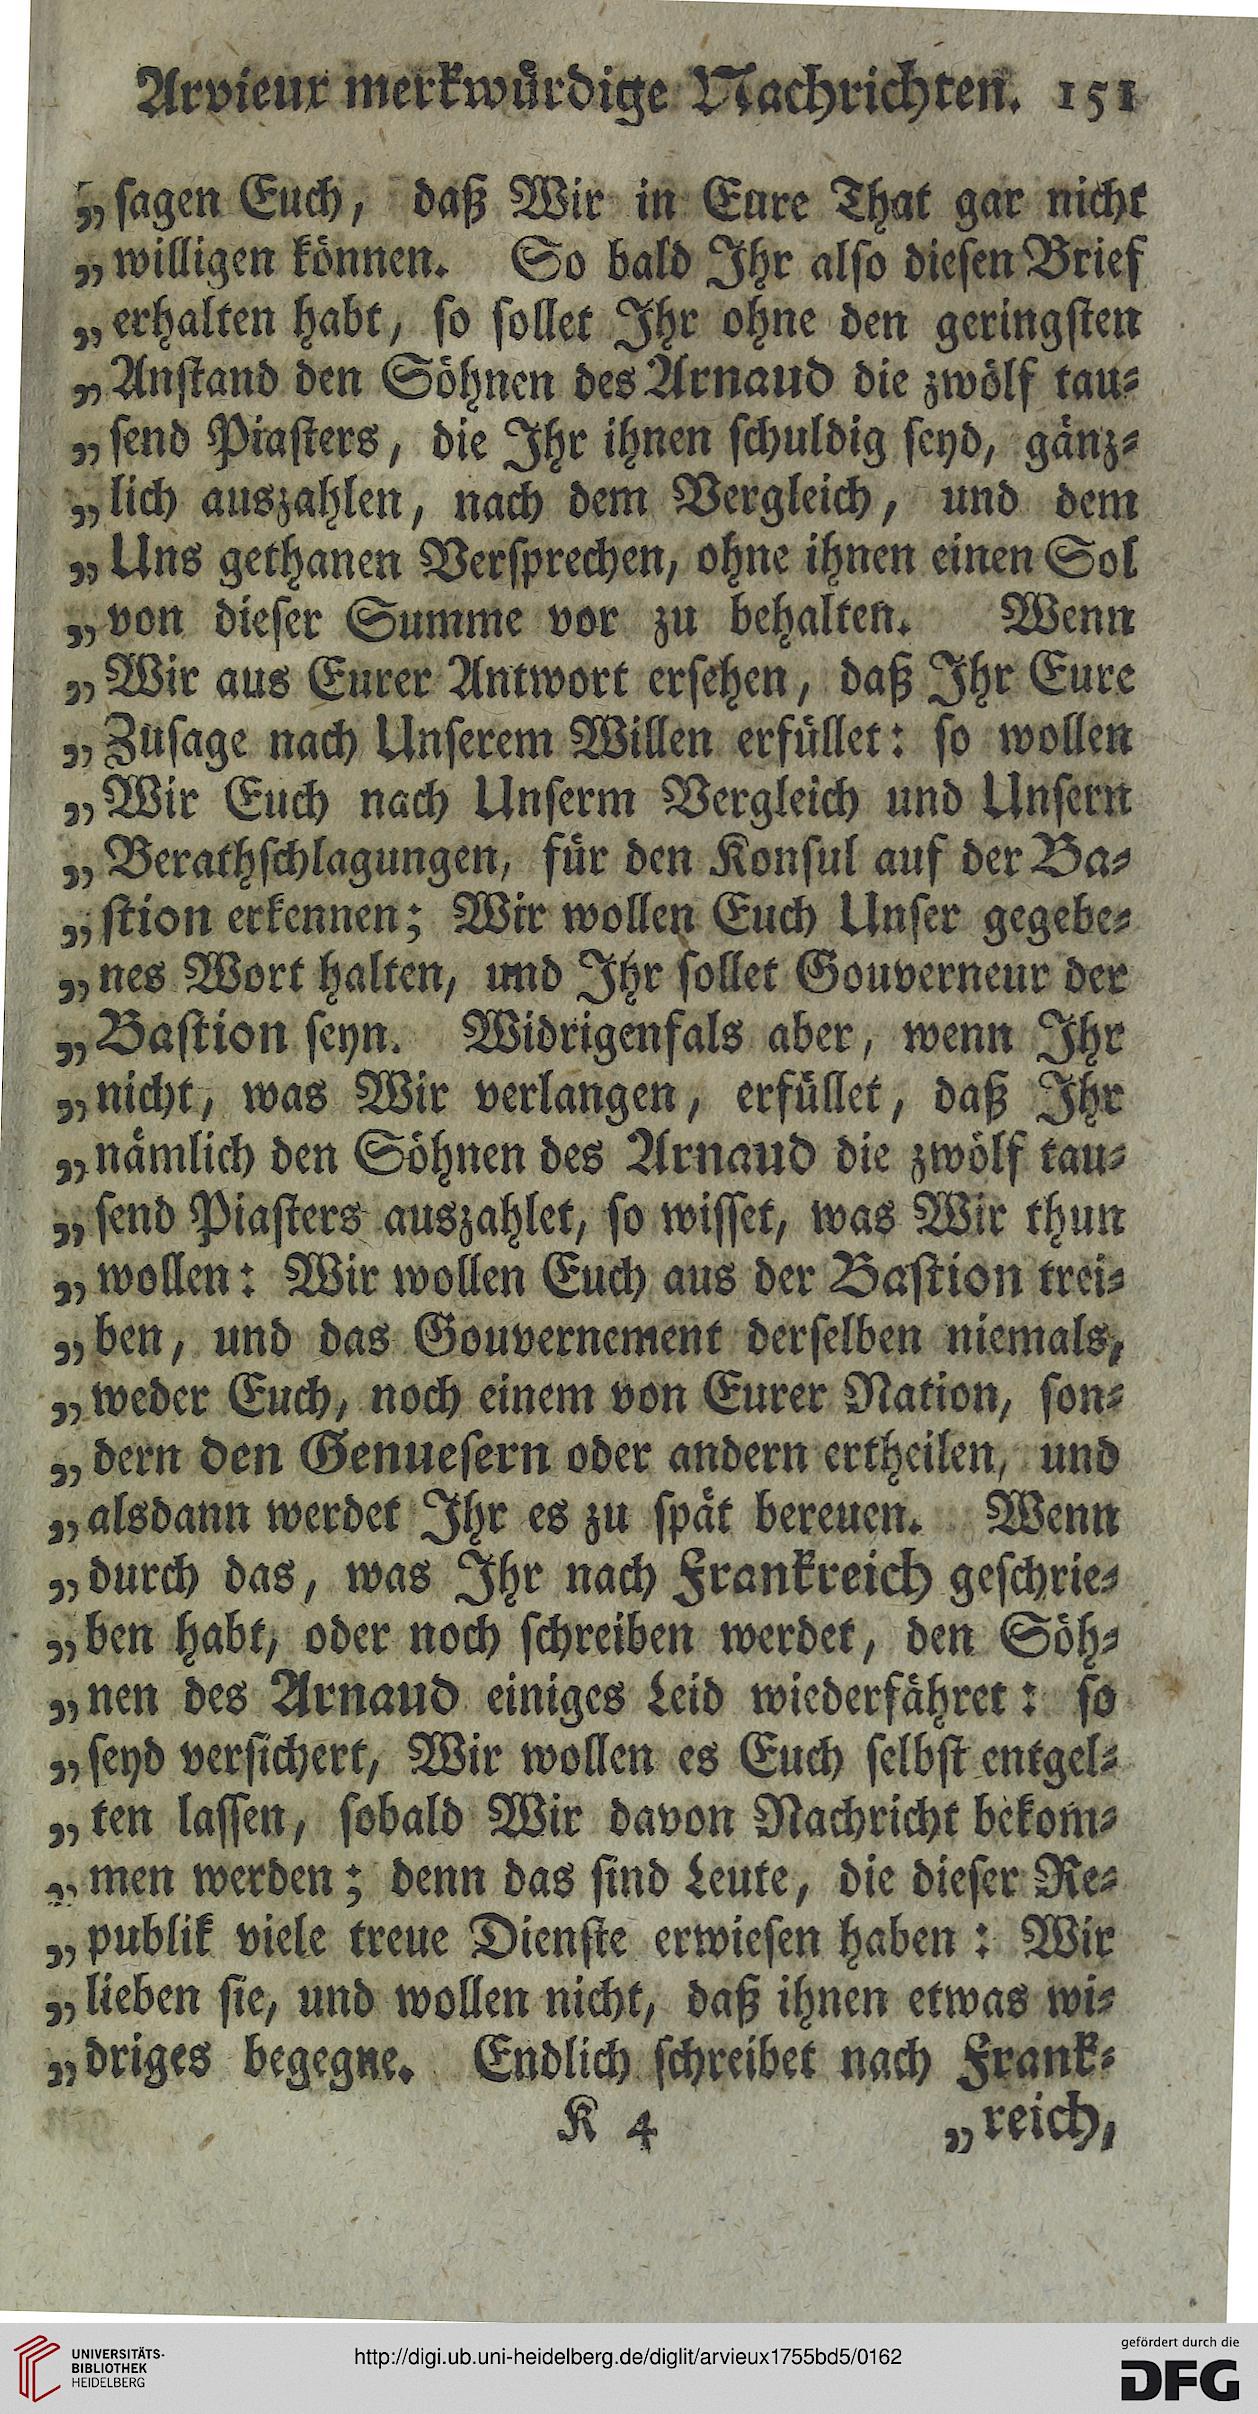 Arvieux merkwürdige Nachrichten. 151
„ sagen Euch, daß Wir in Eure That gar nicht
„ willigen können. So bald Ihr also diesen Brief
„ erhalten habt, so sollet Ihr ohne den geringsten
„ Anstand den Söhnen des Arnaud die zwölf tau-
„ send Piasters, die Ihr ihnen schuldig seyd, gänz-
„ lich auszahlen, nach dem Vergleich, und dem
„ Uns gethanen Versprechen, ohne ihnen einen Sol
„ von dieser Summe vor zu behalten. Wenn
„ Wir aus Eurer Antwort ersehen, daß Ihr Eure
„ Zusage nach Unserem Willen erfüllet: so wollen
„ Wir Euch nach Unserm Vergleich und Unsern
„ Berathschlagungen, für den Konsul auf der Ba-
„ stion erkennen; Wir wollen Euch Unser gegebe-
„ nes Wort halten, und Ihr sollet Gouverneur der
„ Bastion seyn. Widrigenfals aber, wenn Ihr
„ nicht, was Wir verlangen, erfüllet, daß Ihr
„ nämlich den Söhnen des Arnaud die zwölf tau-
„ send Piasters auszahlet, so wisset, was Wir thun
„ wollen: Wir wollen Euch aus der Bastion trei-
„ ben, und das Gouvernement derselben niemals,
„ weder Euch, noch einem von Eurer Nation, son-
„ dern den Genuesern oder andern ertheilen, und
„ alsdann werdet Ihr es zu spät bereuen. Wenn
„ durch das, was Ihr nach Frankreich geschrie-
„ ben habt, oder noch schreiben werdet, den Söh-
„ nen des Arnaud einiges Leid wiederfähret: so
„ seyd versichert, Wir wollen es Euch selbst entgel-
„ ten lassen, sobald Wir davon Nachricht bekom-
„ men werden; denn das sind Leute, die dieser Re-
„ publik viele treue Dienste erwiesen haben: Wir
„ lieben sie, und wollen nicht, daß ihnen etwas wi-
„ driges begegne. Endlich schreibet nach Frank-
K 4 „ reich,
UNIVERSITÄTS-
BIBLIOTHEK
HEIDELBERG
http://digi.ub.uni-heidelberg.de/diglit/arvieux1755bd5/0162
gefördert durch die
DFG